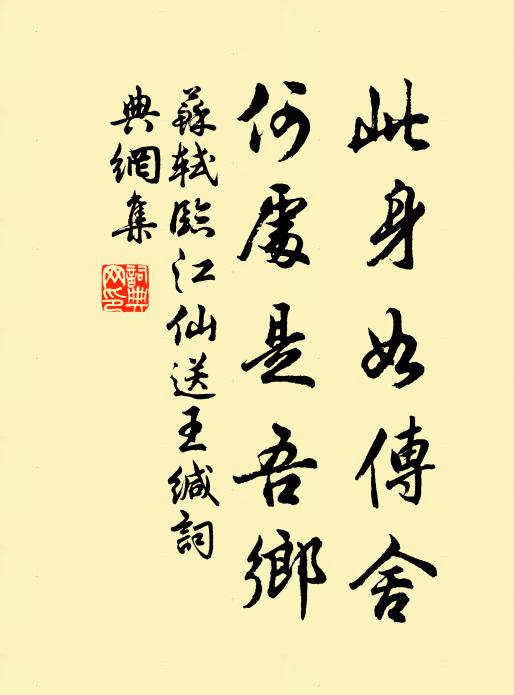 此身如傳舍
何處是吾鄉
蘇軾臨江仙送王緘詞
典網集
詞典网印